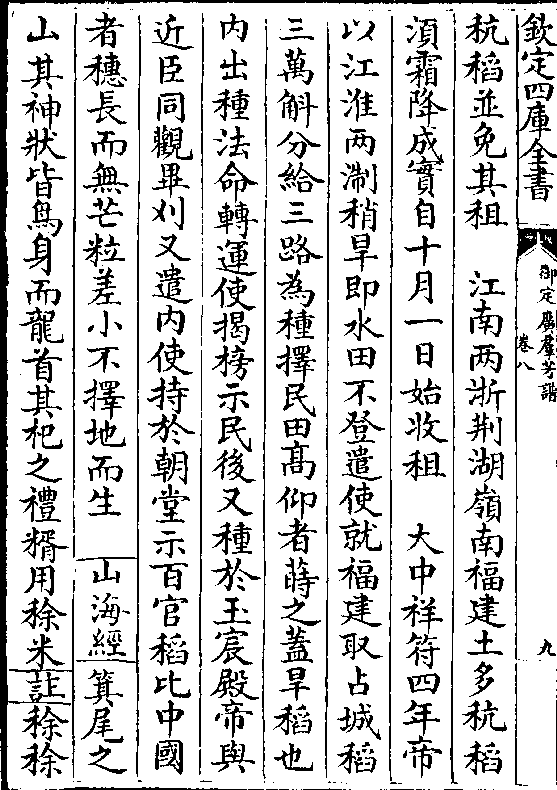 欽定四庫全書
御定廣羣芳譜
卷八
九
秔稻並免其租　江南两浙荆湖嶺南福建土多秔稻
湏霜降成實自十月一日始收租　大中祥符四年帝
以江淮两浙稍旱即水田不登遣使就福建取占城稻
三萬斛分給三路為種擇民田髙仰者蒔之葢旱稻也
内出種法命轉運使揭榜示民後又種於玉宸殿帝與
近臣同觀畢刈又遣内使持於朝堂示百官稻比中國
者穗長而無芒粒差小不擇地而生　山海經箕尾之
山其神狀皆鳥身而龍首其祀之禮糈用稌米註稌稌